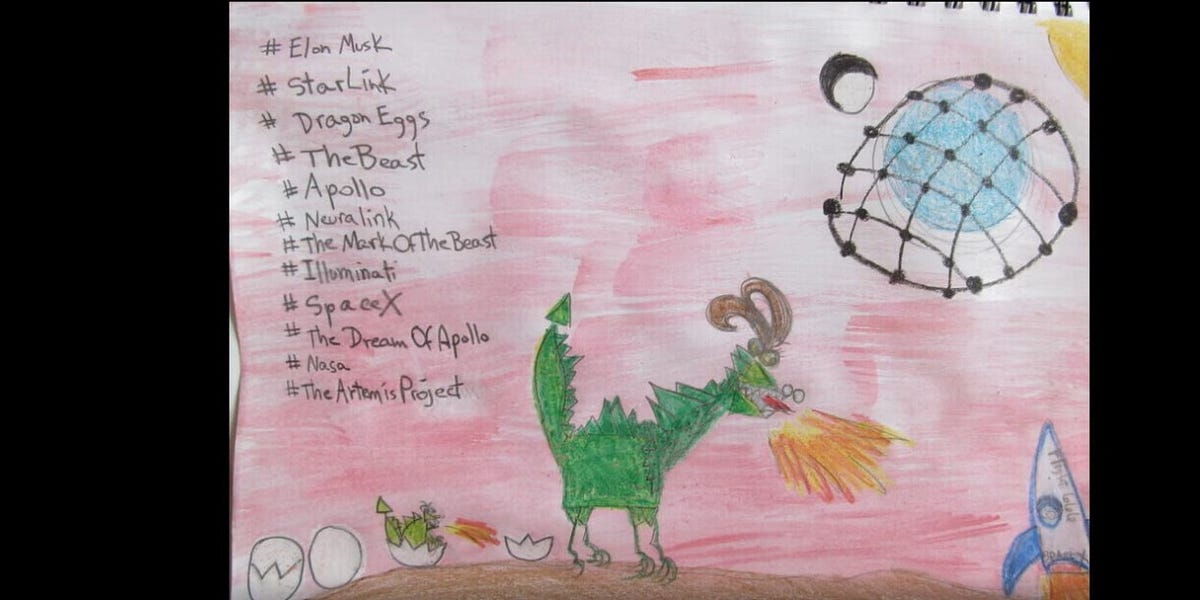 # Elon Musk
# StarLink
# Dragon Eggs
# The Beast
# Apollo
# Neuralink
# The Mark Of The Beast
# Illuminati
# SpaceX
# The Dream Of Apollo
# Nasa
# The Artemis Project
SPACEX